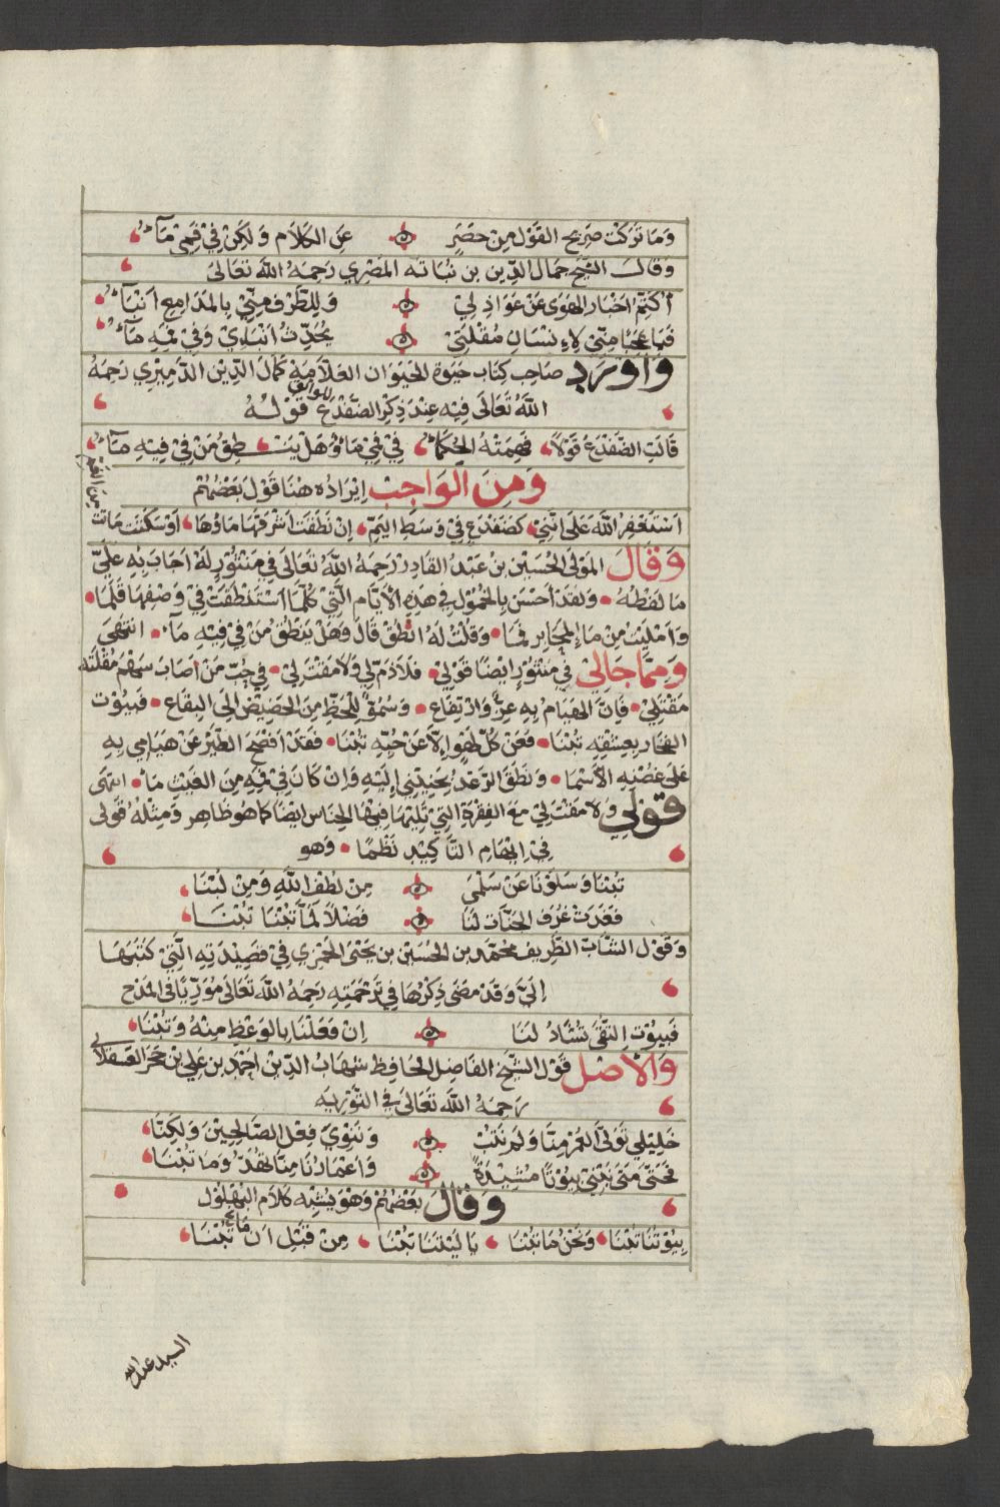 وَمَا تَرَكْتُ صَرِيحَ القَوْلِ مِنْ حَصَرٍ عَنِ الكَلَامِ وَلَكِنْ فِي فَمِي مَآءُ
وقالــ الشيخ جمال الدين بن نباته المصري رحمه الله تعالى
أكتم أخبار الهوى عن عواذلي وللطرف مني بالمدامع أنبآء
فيا عجبا مني لإنسان مقلتي يحدث أنباءي وفي فمه مآء
وأورد صاحب كتاب حيوة الحيوان العلامة كمال الدين الدميري رحمه
الله تعالى فيه عند ذكر الضفدع قوله
قالت الضفدع قولا فهمته الحكمآء في فمي ماء وهل ينـ ـطق من في فيه مآء
ومن الواجب إيراده هنا قول بعضهم
أستغفر الله على أنني كضفدع في وسط اليم إن نطقت أشرقها ماؤها أو سكتت ماتت
من الغم
وقال المولى الحسين بن عبد القادر رحمه الله تعالى في منثور له أجاب به عليّ
ما لفظه ولقد أحسن بالخمول في هذه الأيام التي كلما استنطقت في وصفها قلما
وأمليت من ماء المحابر فما وقلت له انطق قال وهل ينطق من في فيه مآء انتهى
ومما جالي في منثور أيضا قولي فلا ذم لي ولا مقت لي في حب من أصاب سهم مقلته
مقتلي فإن الهيام به عز وارتفاع وسمو للحظ من الحضيض إلى اليفاع فبيوت
الفخار بعشقه تبنا فعن كل لهو إلا عن حبه تبنا فقد أفصح الطير عن هيامي به
على غصنه الأسما ونطق الرعد بحنيني إليه وإن كان في فيه من الغيث مآء انتهى
قولي ولا مقت لي مع الفقرة التي تليها فيها الجناس أيضا كما هو ظاهر ومثله قولي
في إيهام التأكيد نظما وهو
تبنا وسلونا عن سلمى من لطف الله ومن لبنا
فغدت غرف الجنات لنا فضلا لما تبنا تبنا
وقول الشاب الظريف محمد بن الحسين بن يحيى الحمزي في قصيدته التي كتبها
إليّ وقد مضى ذكرها في ترجمته رحمه الله تعالى موريا في المدح
فبيوت التقى تشاد لنا إن فعلنا بالوعظ منه وتبنا
والأصل قول الشيخ الفاضل الحافظ شهاب الدين أحمد بن علي بن حجر العسقلاني
رحمه الله تعالى في التورية
خليلي تولى العمر منا ولم نتب وننوي فعل الصالحين ولكنا
فحتى متى نبني بيوتا مشيدة وأعمارنا منا تهد وما تبنا
وقال بعضهم وهو يشبه كلام البهلول
بيوتنا تبنا ونحن ما تبنا يا ليتنا تبنا من قبل أن تبنا
السيد عبد الله